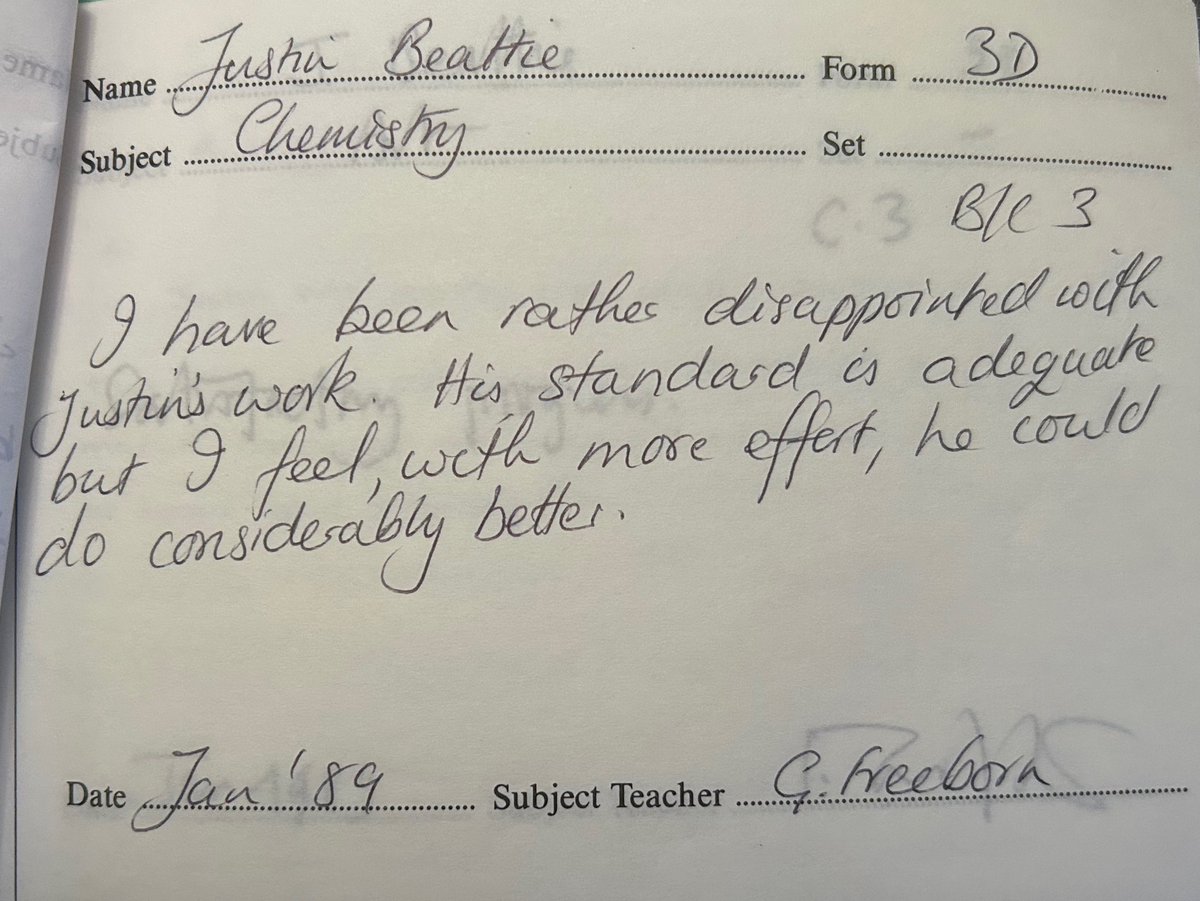 Name Justin Beattie Form 3D
Subject Chemistry Set
B/C 3
I have been rather disappointed with
Justin's work. His standard is adequate
but I feel, with more effort, he could
do considerably better.
Date Jan '89 Subject Teacher G. Freeborn